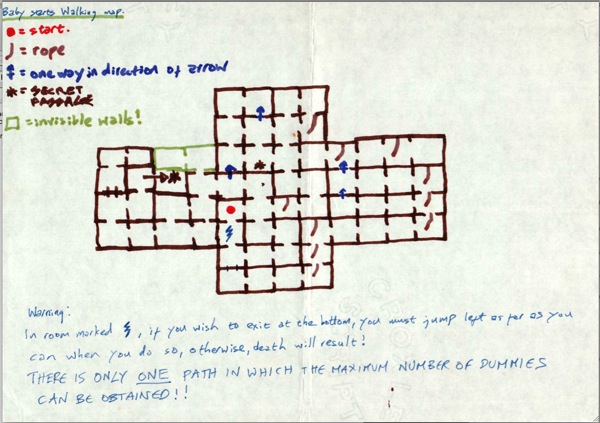 Baby starts Walking map:
= start.
= rope
= one way in direction of arrow
* = SECRET
PASSAGE
= invisible walls!
Warning:
In room marked , if you wish to exit at the bottom, you must jump left as far as you
can when you do so, otherwise, death will result!
THERE IS ONLY ONE PATH IN WHICH THE MAXIMUM NUMBER OF DUMMIES
CAN BE OBTAINED!!